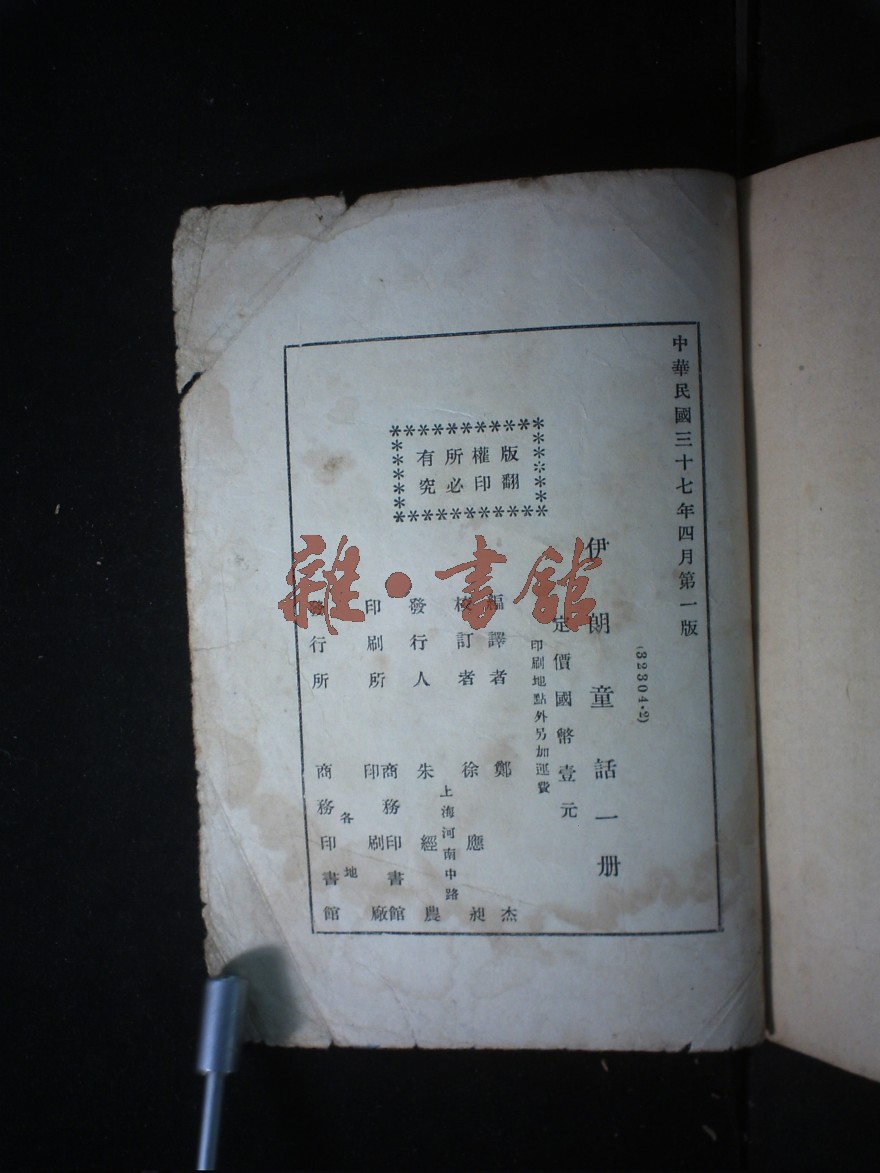 中華民國三十七年四月第一版
(32304·2)
伊朗童話一册
定價國幣壹元
印刷地點外另加運費
版權所有
翻印必究
編譯者 鄭杰
校訂者 徐應昶
上海河南中路
發行人 朱經農
印刷所 商務印書館印刷廠
各地
發行所 商務印書館
雜·書館